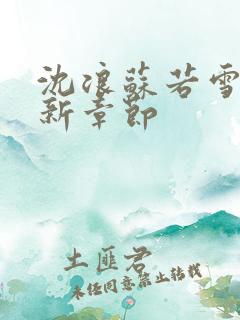 沈浪蘇若雪
新章節
土匪君
未經同意禁止轉載